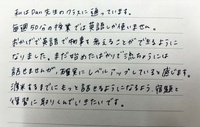 私はDan先生のクラスに通っています。
毎週50分の授業では英語しか使いません。
おかげで英語で物事を考えることができるように
なりました。まだ始めたばかりで流ちょうには
話せませんが、確実にレベルアップしていると感じます。
渡米するまでにもっと話せるようになるよう、宿題と
復習に取りくんでいきたいです。